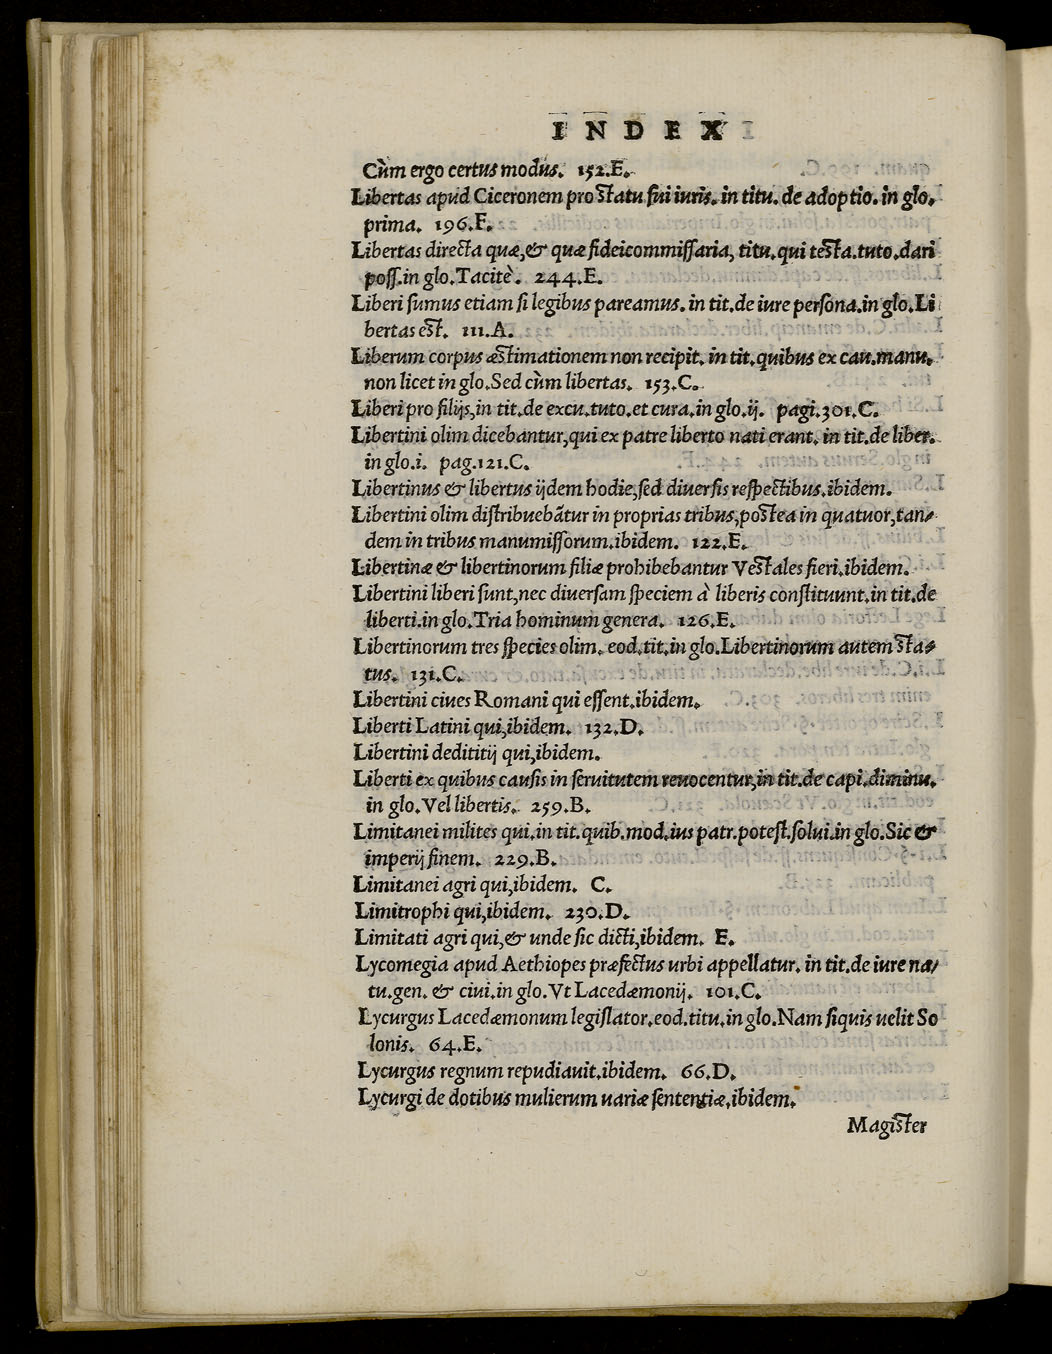 INDEX
Cùm ergo certus modus. 152.E.
Libertas apud Ciceronem pro statu sui iuris. in titu. de adoptio. in glo.
prima. 196.F.
Libertas directa quæ, & quæ fideicommissaria, titu. qui testa.tuto.dari
poss.in glo.Tacitè. 244.E.
Liberi sumus etiam si legibus pareamus. in tit.de iure persona.in glo.Li
bertas est. 111.A.
Liberum corpus æstimationem non recipit. in tit.quibus ex cau.manu.
non licet in glo.Sed cùm libertas. 153.C.
Liberi pro filijs,in tit.de excu.tuto.et cura.in glo.ij. pagi.301.C.
Libertini olim dicebantur,qui ex patre liberto nati erant. in tit.de liber.
in glo.i. pag.121.C.
Libertinus & libertus ijdem hodie,sed diuersis respectibus.ibidem.
Libertini olim distribuebãtur in proprias tribus,postea in quatuor,tan/
dem in tribus manumissorum.ibidem. 122.E.
Libertinæ & libertinorum filiæ prohibebantur Vestales fieri.ibidem.
Libertini liberi sunt,nec diuersam speciem à liberis constituunt.in tit.de
liberti.in glo.Tria hominum genera. 126.E.
Libertinorum tres species olim. eod.tit.in glo.Libertinorum autem sta/
tus. 131.C.
Libertini ciues Romani qui essent.ibidem.
Liberti Latini qui,ibidem. 132.D.
Libertini dedititij qui,ibidem.
Liberti ex quibus causis in seruitutem reuocentur,in tit.de capi.diminu.
in glo.Vel libertis. 259.B.
Limitanei milites qui.in tit.quib.mod.ius patr.potest.solui.in glo.Sic &
imperij finem. 229.B.
Limitanei agri qui,ibidem. C.
Limitrophi qui,ibidem. 230.D.
Limitati agri qui,& unde sic dicti,ibidem. E.
Lycomegia apud Aethiopes præfectus urbi appellatur. in tit.de iure na/
tu.gen. & ciui.in glo.Vt Lacedæmonij. 101.C.
Lycurgus Lacedæmonum legislator.eod.titu.in glo.Nam siquis uelit So
lonis. 64.E.
Lycurgus regnum repudiauit.ibidem. 66.D.
Lycurgi de dotibus mulierum uariæ sententiæ.ibidem.
Magister